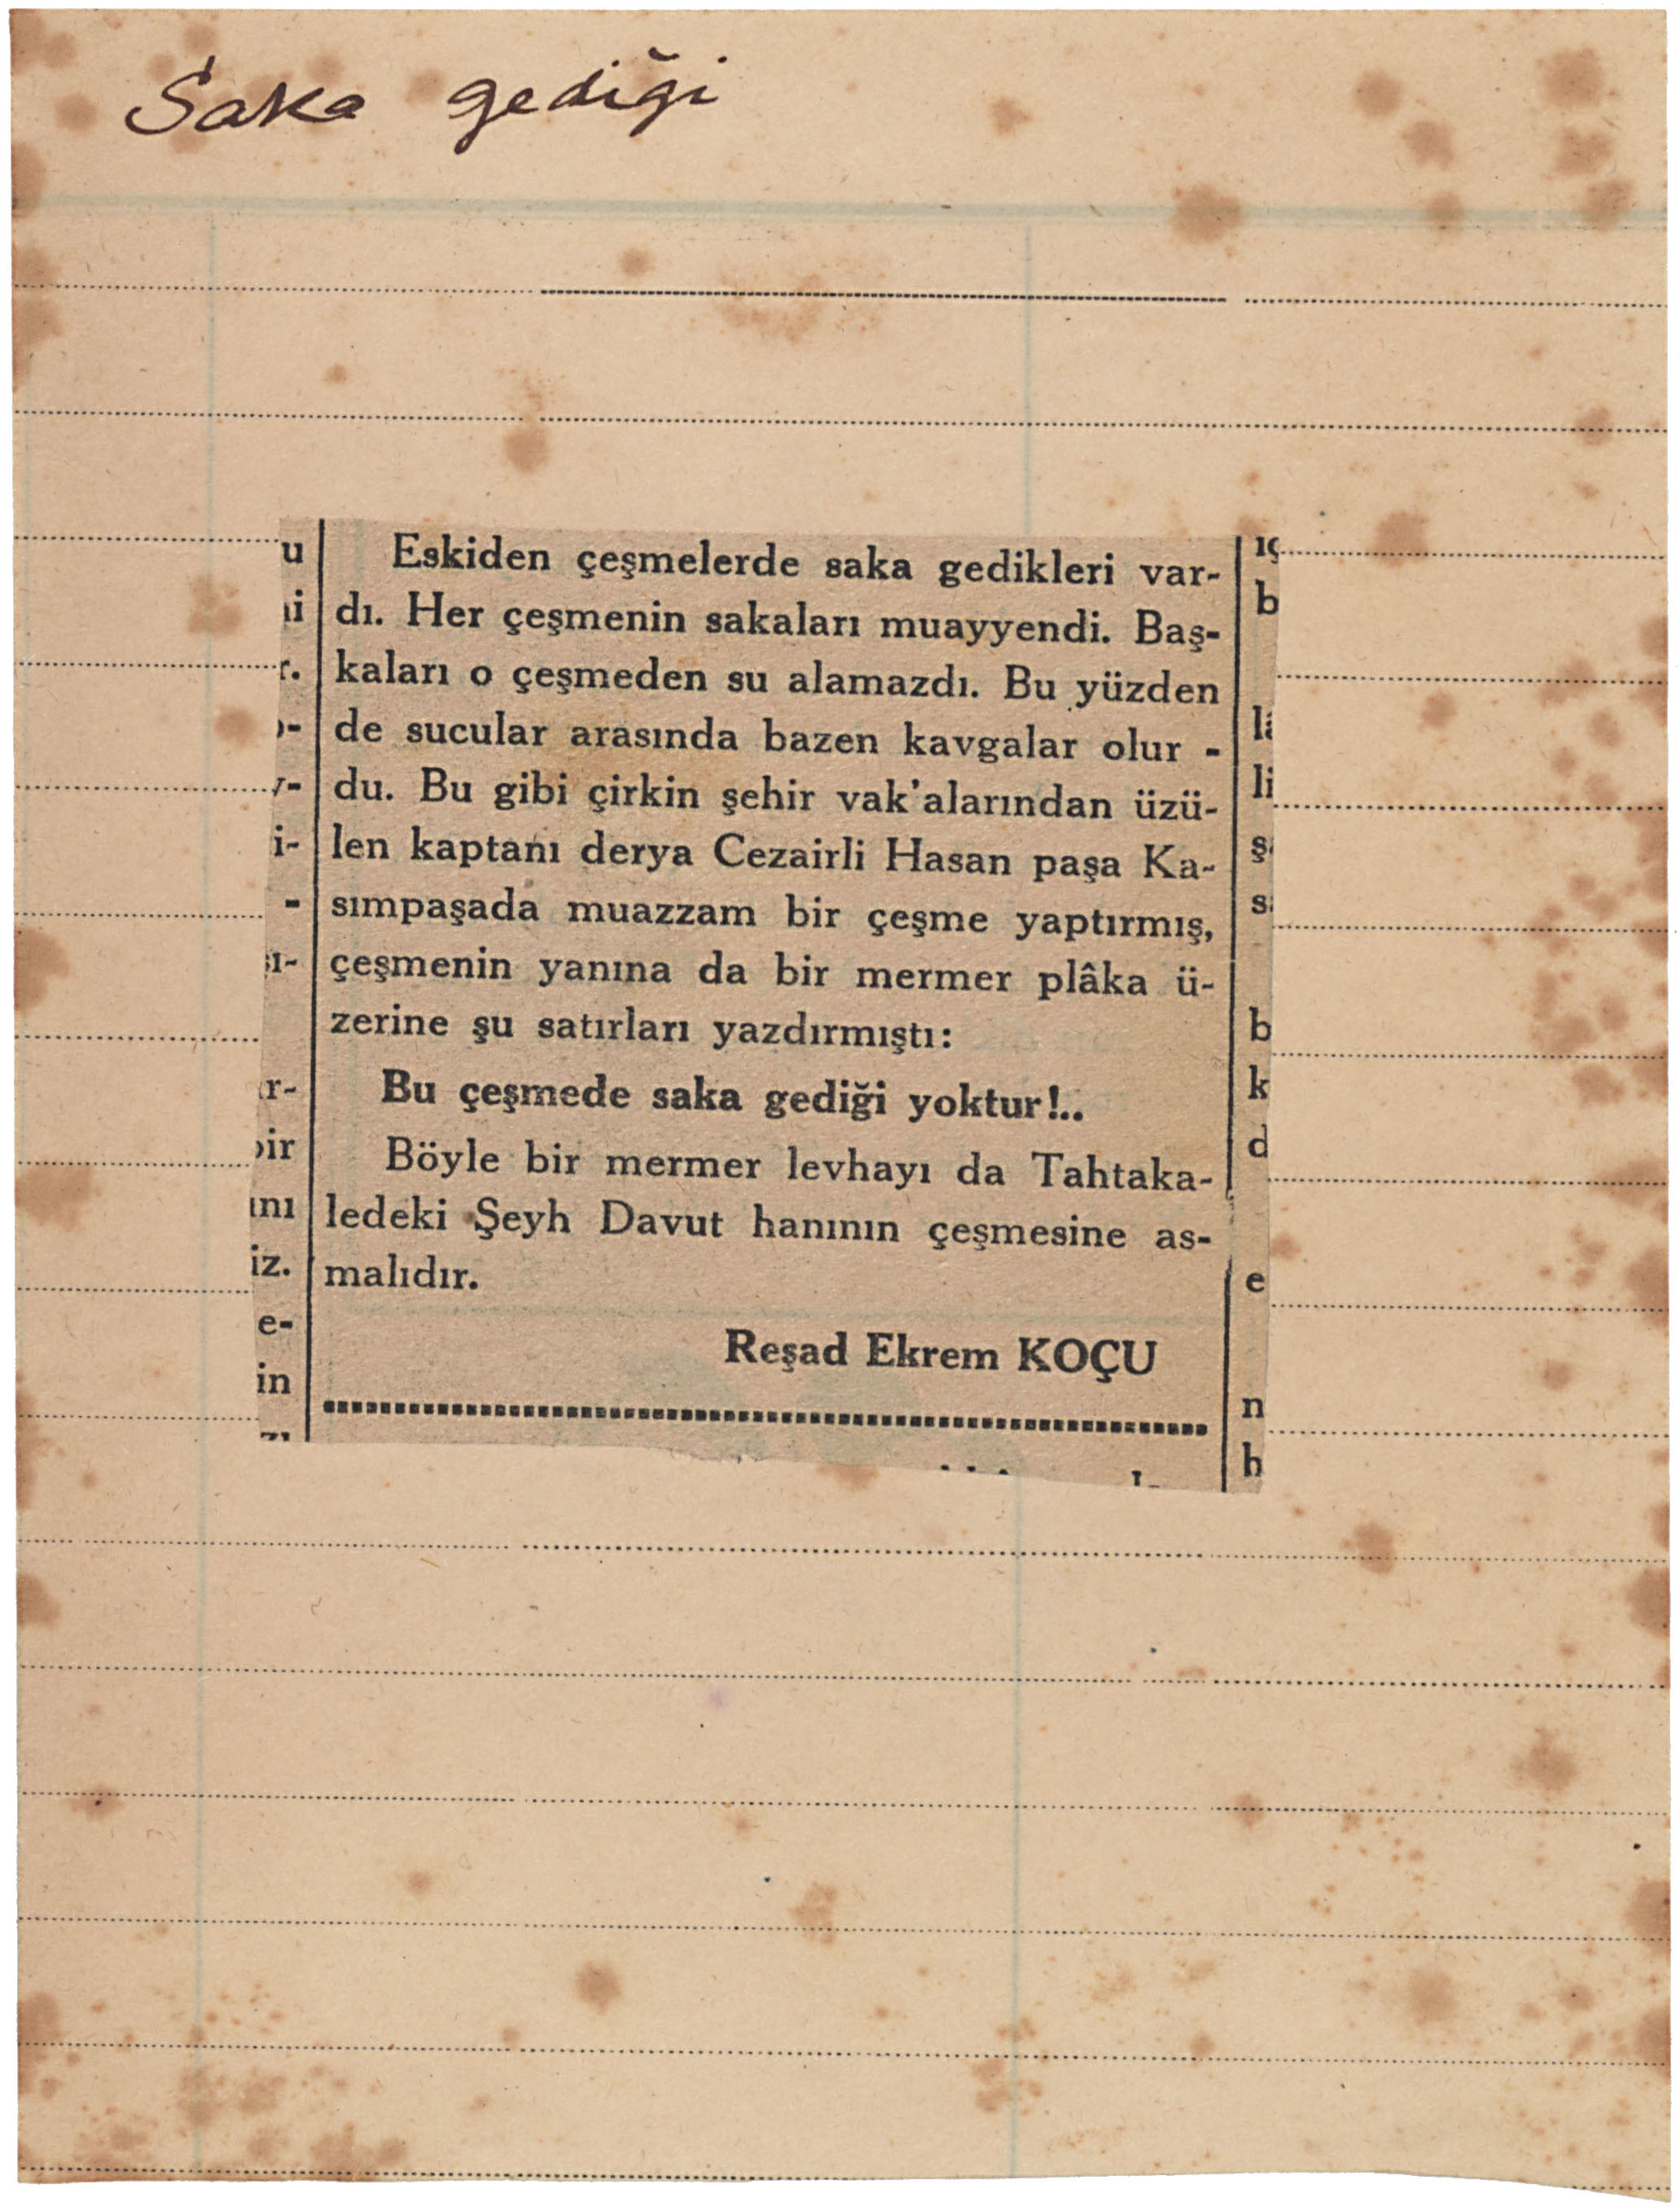 Saka gediği
Eskiden çeşmelerde saka gedikleri var-
dı. Her çeşmenin sakaları muayyendi. Baş-
kaları o çeşmeden su alamazdı. Bu yüzden
de sucular arasında bazen kavgalar olur -
du. Bu gibi çirkin şehir vak'alarından üzü-
len kaptanı derya Cezairli Hasan paşa Ka-
sımpaşada muazzam bir çeşme yaptırmış,
çeşmenin yanına da bir mermer plâka ü-
zerine şu satırları yazdırmıştı:
Bu çeşmede saka gediği yoktur!..
Böyle bir mermer levhayı da Tahtaka-
ledeki Şeyh Davut hanının çeşmesine as-
malıdır.
Reşad Ekrem KOÇU